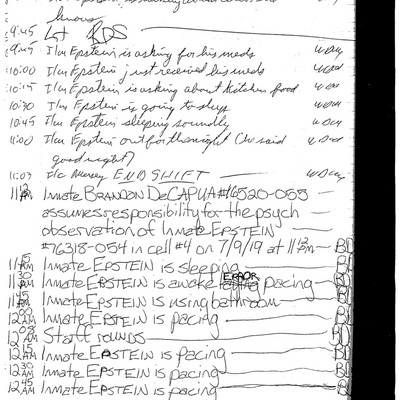 knows
9:45 Lt RDS
9:47 I/m Epstein is asking for his meds
10:00 I/m Epstein just received his meds
10:15 I/m Epstein is asking about kitchen food
10:30 I/m Epstein is going to sleep
10:45 I/m Epstein sleeping soundly
11:00 I/m Epstein out for the night (he said
good night)
11:07 I/c END SHIFT
Inmate BRANDON DeCAPUA #76520-053
assumes responsibility for the psych
observation of Inmate EPSTEIN
#76318-054 in cell #4 on 7/9/19 at BD
11 15 PM Inmate EPSTEIN is sleeping BD
11 30 PM Inmate EPSTEIN is awake ERROR pacing BD
11 45 PM Inmate EPSTEIN is using bathroom BD
12 00 AM Inmate EPSTEIN is pacing BD
12 08 AM Staff rounds BD
12 15 AM Inmate EPSTEIN is pacing BD
12 30 AM Inmate EPSTEIN is pacing BD
12 45 AM Inmate EPSTEIN is pacing BD